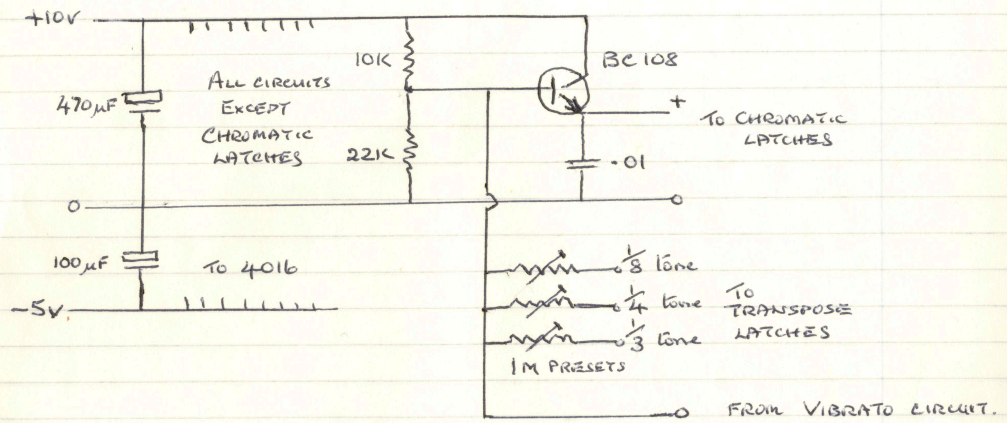 +10V
10K
BC108
470µF
ALL CIRCUITS
EXCEPT
CHROMATIC
LATCHES
+
TO CHROMATIC
LATCHES
22K
·01
0
100µF
TO 4016
-5V
1/8 tone
1/4 tone
1/3 tone
TO
TRANSPOSE
LATCHES
1M PRESETS
FROM VIBRATO CIRCUIT.